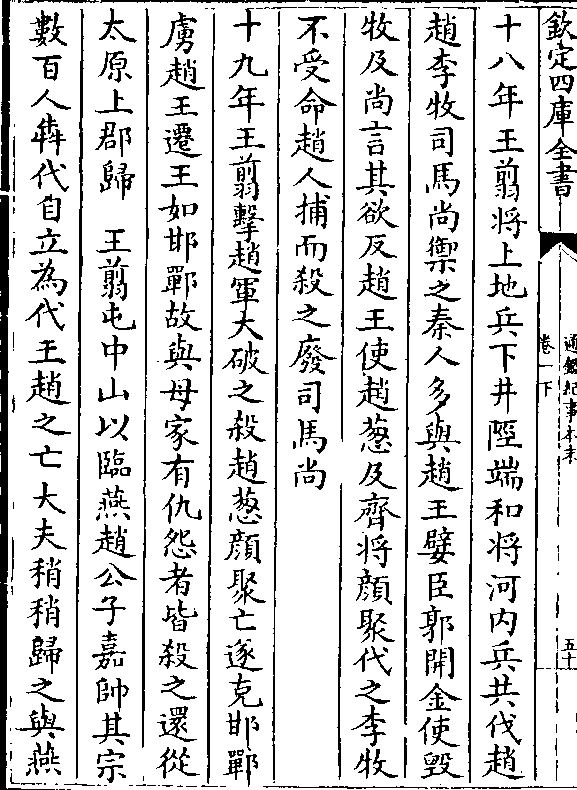 欽定四庫全書
通鑑紀事本末
卷一下
五十
十八年王翦将上地兵下井陘端和将河内兵共伐趙
趙李牧司馬尚禦之秦人多與趙王嬖臣郭開金使毁
牧及尚言其欲反趙王使趙葱及齊将顔聚代之李牧
不受命趙人捕而殺之廢司馬尚
十九年王翦擊趙軍大破之殺趙葱顔聚亡遂克邯鄲
虜趙王遷王如邯鄲故與母家有仇怨者皆殺之還從
太原上郡歸　王翦屯中山以臨燕趙公子嘉帥其宗
數百人犇代自立為代王趙之亡大夫稍稍歸之與燕